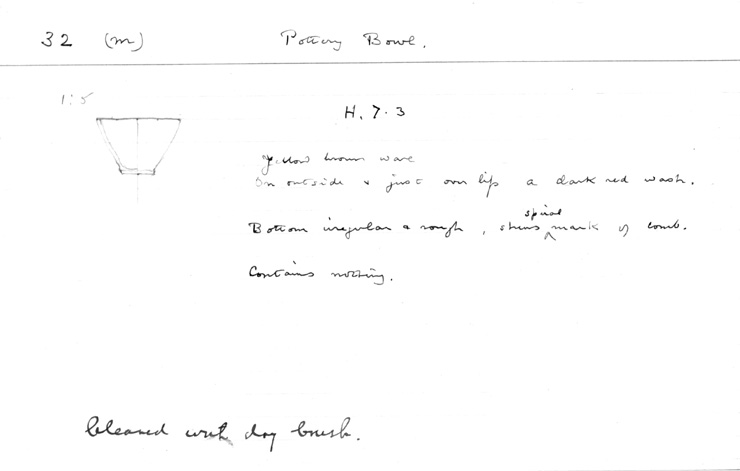 32 (m) Pottery Bowl.
1:5
H. 7.3
Yellow brown ware
On outside & just over lip a dark red wash.
Bottom irregular & rough, shows spiral mark of comb.
Contains nothing.
Cleaned with dry brush.